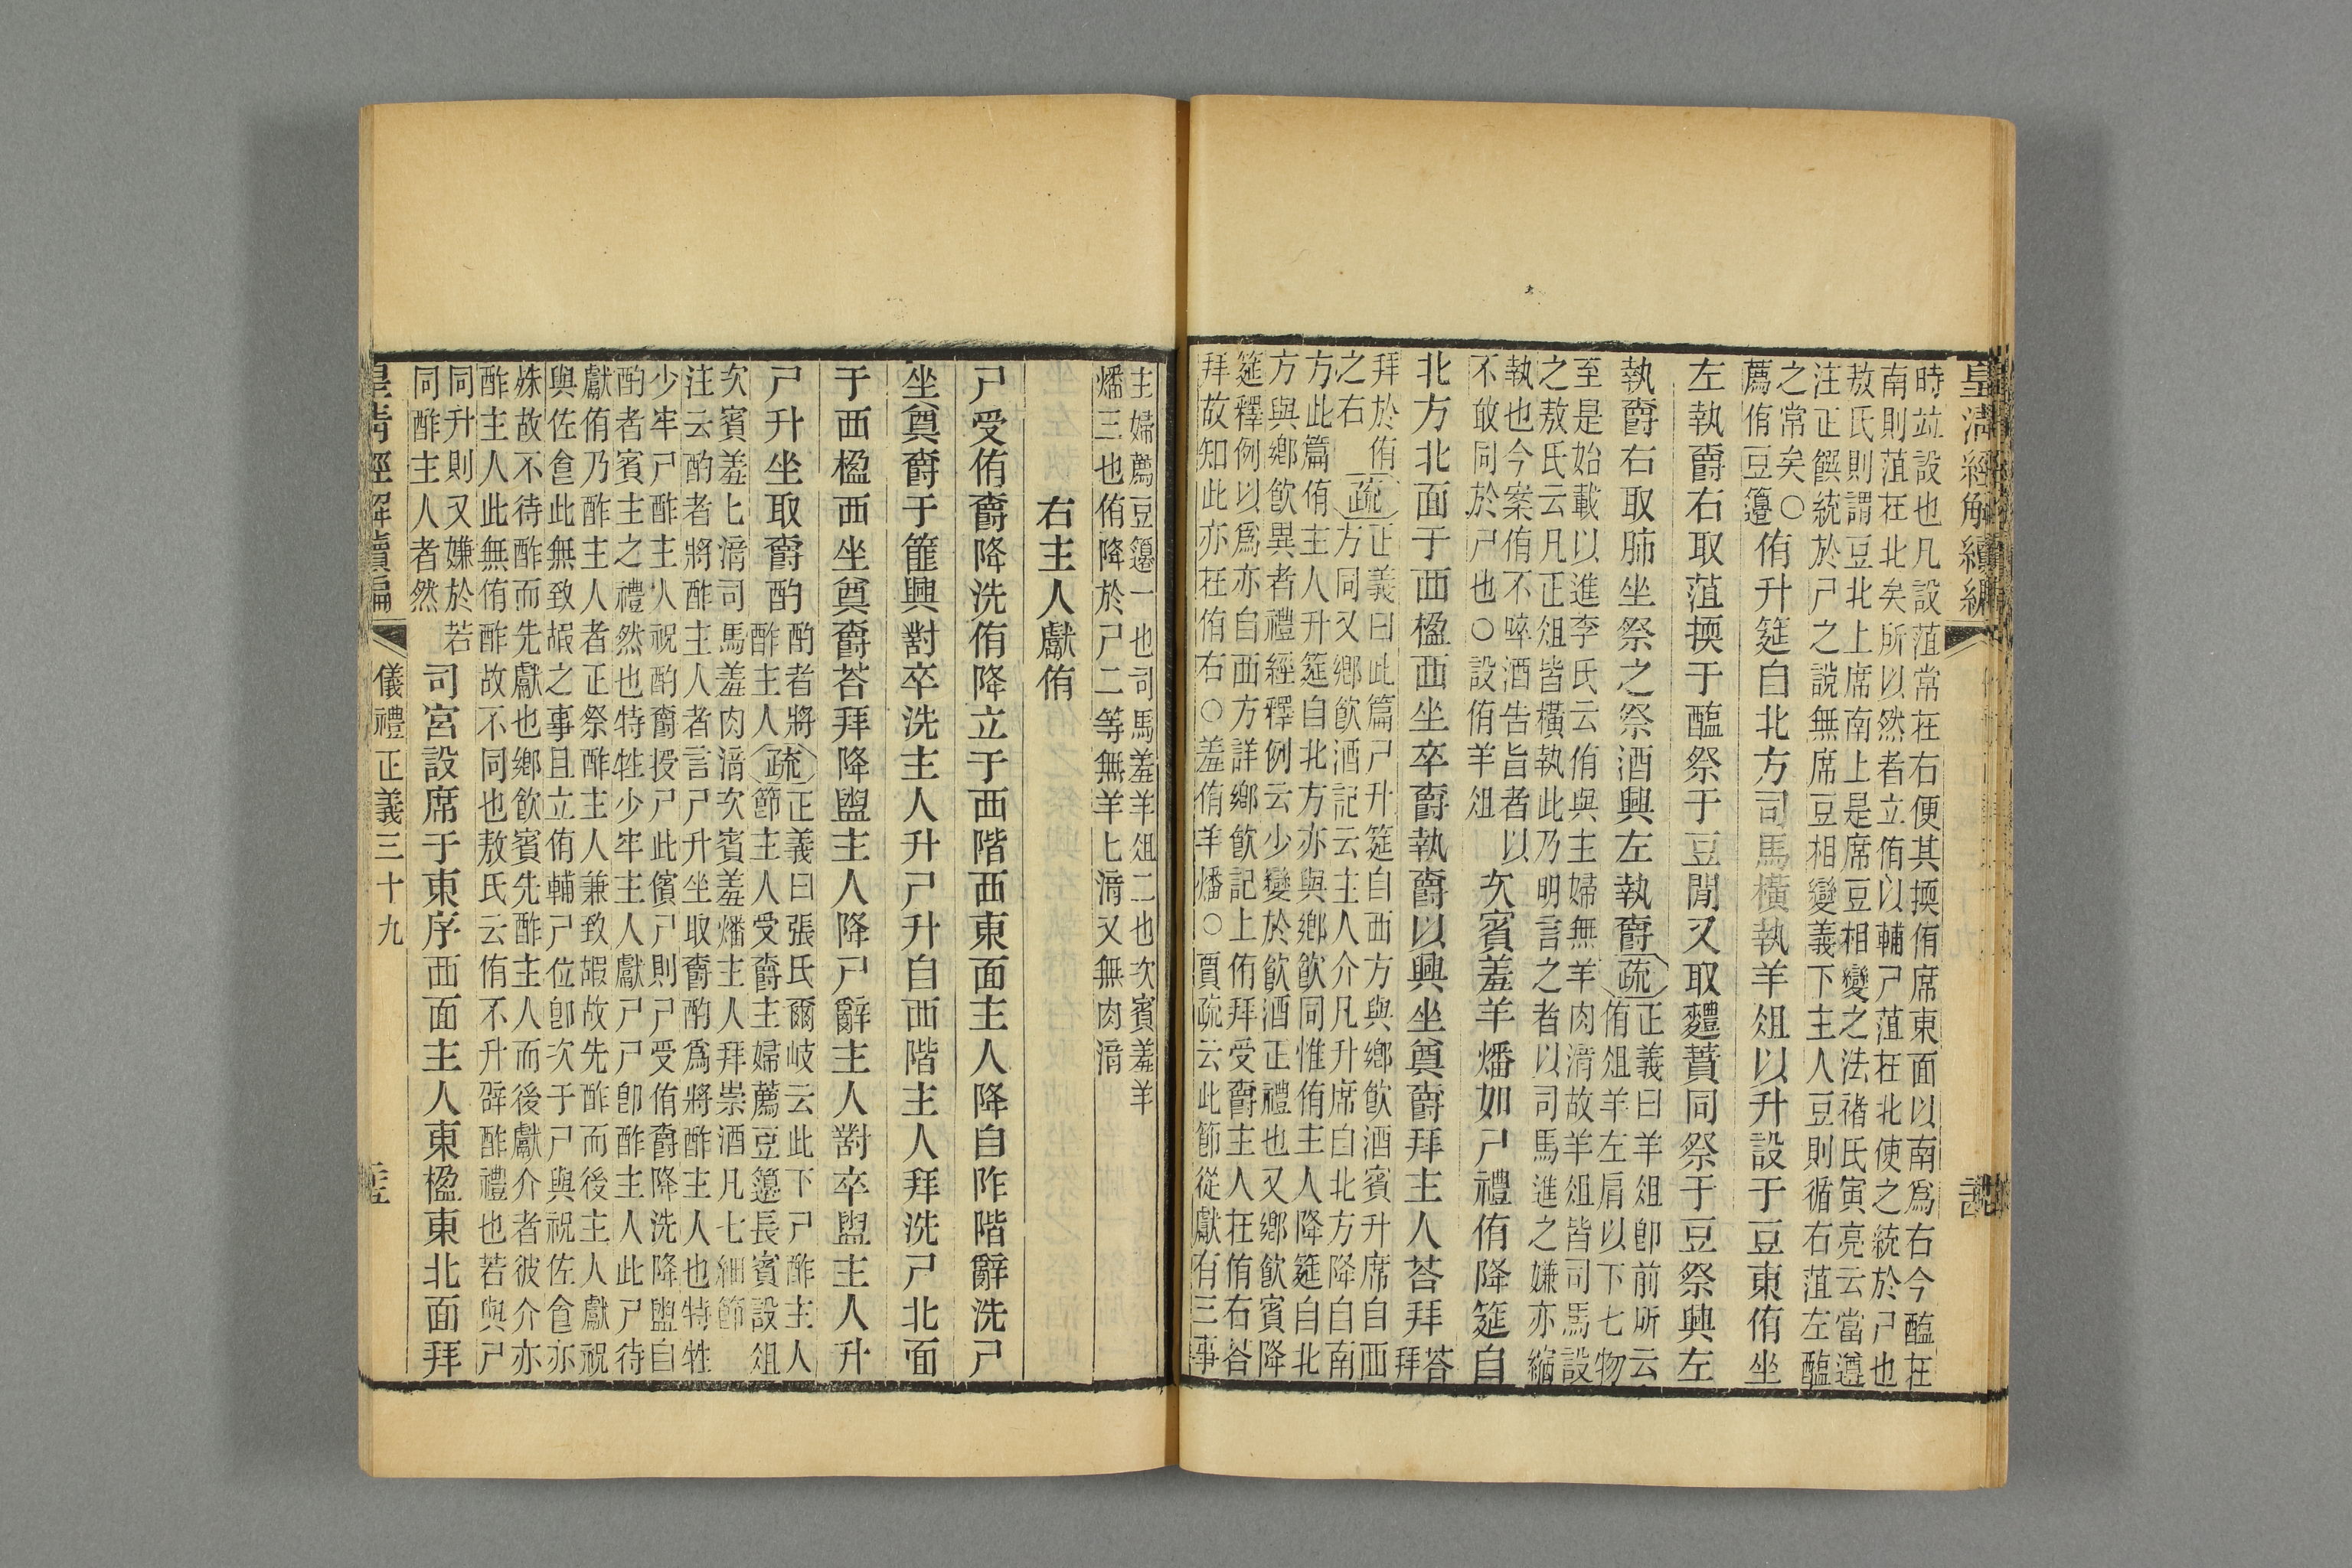 皇清經解續編
時竝設也凡設菹常在右便其㨎侑席東面以南爲右今醢在
南則菹在北矣所以然者立侑以輔尸菹在北使之統於尸也
敖氏則謂豆北上席南上是席豆相變之法褚氏寅亮云當遵
注正饌統於尸之說無席豆相變義下主人豆則循右菹左醢
之常矣○
薦侑豆籩
侑升筵自北方司馬橫執羊俎以升設于豆東侑坐
左執爵右取菹㨎于醢祭于豆閒又取麷蕡同祭于豆祭興左
執爵右取肺坐祭之祭酒興左執爵
疏
正義曰羊俎卽前所云
侑俎羊左肩以下七物
至是始載以進李氏云侑與主婦無羊肉湆故羊俎皆司馬設
之敖氏云凡正俎皆橫執此乃明言之者以司馬進之嫌亦縮
執也今案侑不啐酒告旨者以
不敢同於尸也○設侑羊俎
次賓羞羊燔如尸禮侑降筵自
北方北面于西楹西坐卒爵執爵以興坐奠爵拜主人荅拜
荅
拜
拜於侑
之右
疏
正義曰此篇尸升筵自西方與鄉飲酒賓升席自西
方同又鄉飲酒記云主人介凡升席自北方降自南
方此篇侑主人升筵自北方亦與鄉飲同惟侑主人降筵自北
方與鄉飲異者禮經釋例云少變於飲酒正禮也又鄉飲賓降
筵釋例以爲亦自西方詳鄉飲記上侑拜受爵主人在侑右荅
拜故知此亦在侑右○羞侑羊燔○賈疏云此節從獻有三事
主婦薦豆籩一也司馬羞羊俎二也次賓羞羊
燔三也侑降於尸二等無羊匕湆又無肉湆
右主人獻侑
尸受侑爵降洗侑降立于西階西東面主人降自阼階辭洗尸
坐奠爵于篚興對卒洗主人升尸升自西階主人拜洗尸北面
于西楹西坐奠爵荅拜降盥主人降尸辭主人對卒盥主人升
尸升坐取爵酌
酌者將
酢主人
疏
正義曰張氏爾岐云此下尸酢主人
節主人受爵主婦薦豆籩長賓設俎
次賓羞匕湆司馬羞肉湆次賓羞燔主人拜崇酒凡七細節
注云酌者將酢主人者言尸升坐取爵酌爲將酢主人也特牲
少牢尸酢主人祝酌爵授尸此儐尸則尸受侑爵降洗降盥自
酌者賓主之禮然也特牲少牢主人獻尸尸卽酢主人此尸待
獻侑乃酢主人者正祭酢主人兼致嘏故先酢而後主人獻祝
與佐食此無致嘏之事且立侑輔尸位卽次于尸與祝佐食亦
殊故不待酢而先獻也鄉飲賓先酢主人而後獻介者彼介亦
酢主人此無侑酢故不同也敖氏云侑不升辟酢禮也若與尸
同升則又嫌於若
同酢主人者然
司宮設席于東序西面主人東楹東北面拜
皇清經解續編
儀禮正義三十九